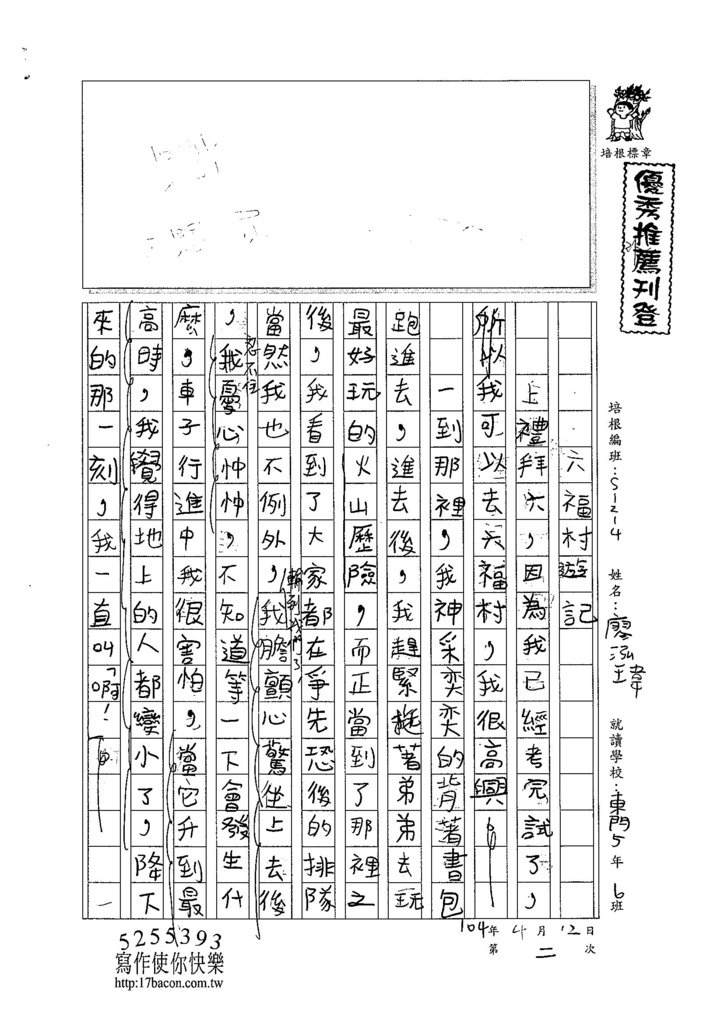 培根標章
優秀推薦刊登
培根編班：S1214
姓名：廖泓瑋
就讀學校：東門5年6班
104年4月12日
第二次
六福村遊記
上禮拜六，因為我已經考完試了，
所以我可以去六福村，我很高興！
一到那裡，我神采奕奕的背著書包
跑進去，進去後，我趕緊拖著弟弟去玩
最好玩的火山歷險，而正當到了那裡之
後，我看到了大家都在爭先恐後的排隊
當然我也不例外，輪到我們了，我膽顫心驚坐上去後
，我忍不住憂心忡忡，不知道等一下會發生什
麼，車子行進中我很害怕，當它升到最
高時，我覺得地上的人都變小了，降下
來的那一刻，我一直叫「啊！」
5255393
寫作使你快樂
http:17bacon.com.tw